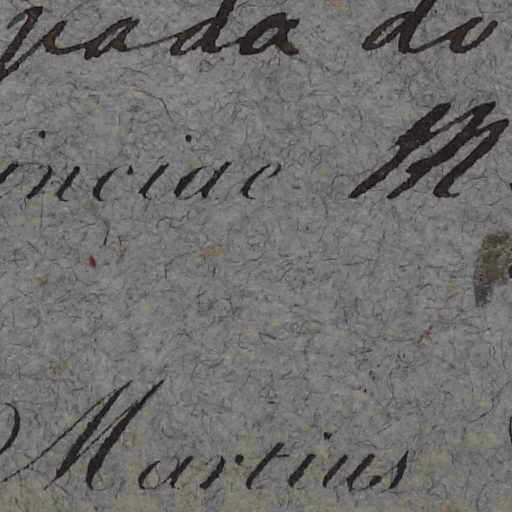 pada do
inciae M
Martius